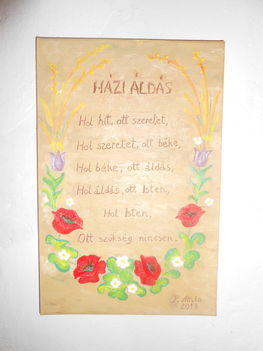 HÁZI ÁLDÁS
Hol hit, ott szeretet,
Hol szeretet, ott béke,
Hol béke, ott áldás,
Hol áldás, ott Isten,
Hol Isten,
Ott szükség nincsen.
2013